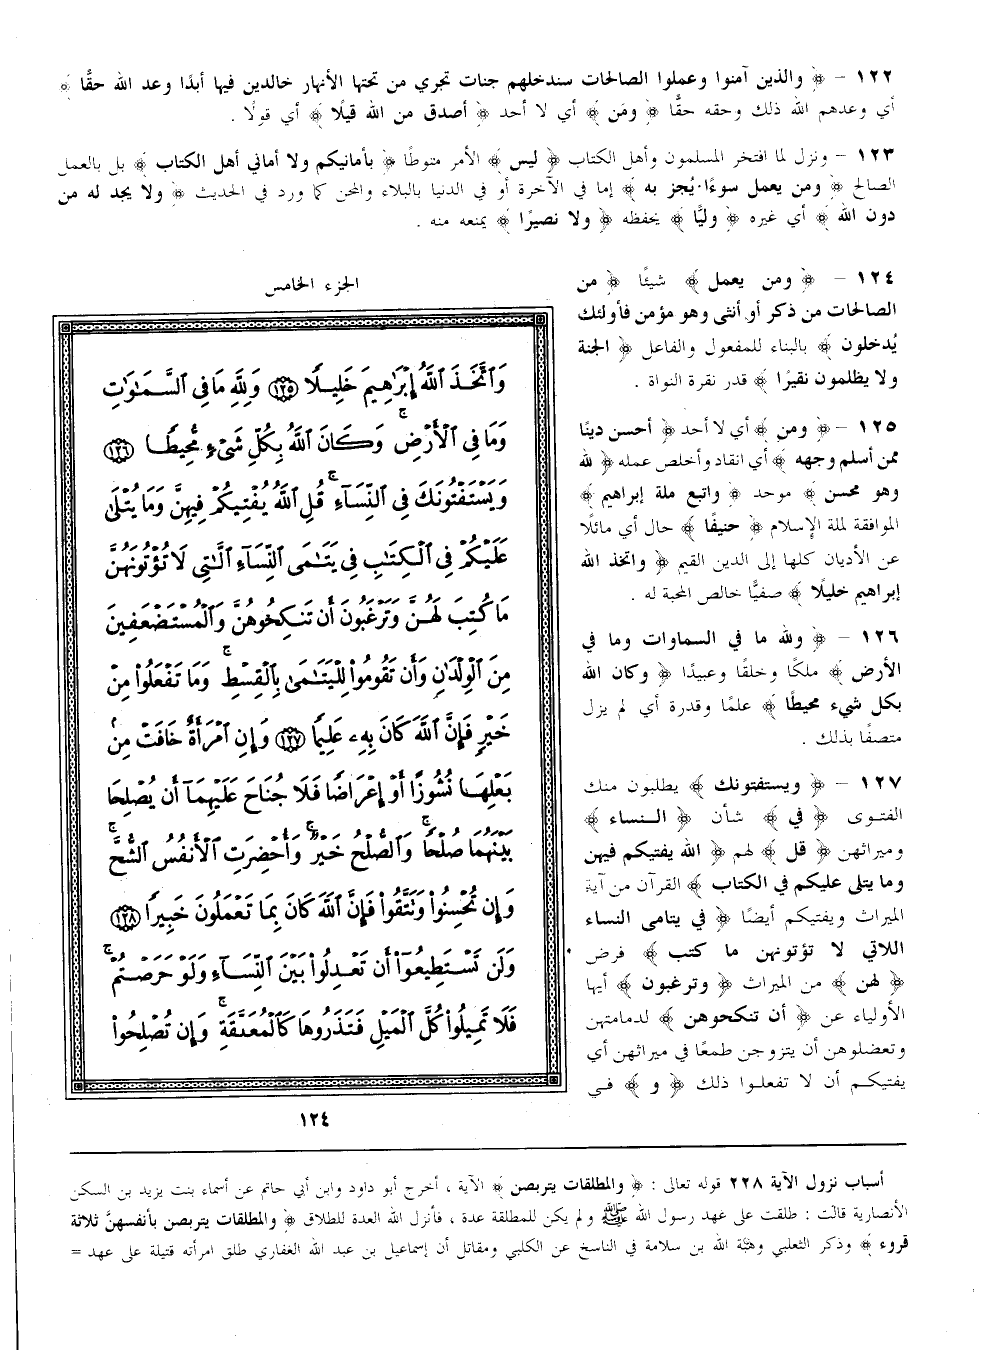 ١٢٢ – ﴿ والذين آمنوا وعملوا الصالحات سندخلهم جنات تجري من تحتها الأنهار خالدين فيها أبدًا وعد الله حقًّا ﴾
أي وعدهم الله ذلك وحقه حقًّا ﴿ ومَن ﴾ أي لا أحد ﴿ أصدق من الله قيلًا ﴾ أي قولًا .
١٢٣ – ونزل لما افتخر المسلمون وأهل الكتاب ﴿ ليس ﴾ الأمر منوطًا ﴿ بأمانيكم ولا أماني أهل الكتاب ﴾ بل بالعمل
الصالح ﴿ ومن يعمل سوءًا يُجز به ﴾ إما في الآخرة أو في الدنيا بالبلاء والمحن كما ورد في الحديث ﴿ ولا يجد له من
دون الله ﴾ أي غيره ﴿ وليًّا ﴾ يحفظه ﴿ ولا نصيرًا ﴾ يمنعه منه .
١٢٤ – ﴿ ومن يعمل ﴾ شيئًا ﴿ من
الصالحات من ذكر أو أنثى وهو مؤمن فأولئك
يُدخلون ﴾ بالبناء للمفعول والفاعل ﴿ الجنة
ولا يظلمون نقيرًا ﴾ قدر نقرة النواة .
١٢٥ – ﴿ ومن ﴾ أي لا أحد ﴿ أحسن دينًا
ممن أسلم وجهه ﴾ أي انقاد وأخلص عمله ﴿ لله
وهو محسن ﴾ موحد ﴿ واتبع ملة إبراهيم ﴾
الموافقة لملة الإسلام ﴿ حنيفًا ﴾ حال أي مائلًا
عن الأديان كلها إلى الدين القيم ﴿ واتخذ الله
إبراهيم خليلًا ﴾ صفيًّا خالص المحبة له .
١٢٦ – ﴿ ولله ما في السماوات وما في
الأرض ﴾ ملكًا وخلقًا وعبيدًا ﴿ وكان الله
بكل شيء محيطًا ﴾ علمًا وقدرة أي لم يزل
متصفًا بذلك .
١٢٧ – ﴿ ويستفتونك ﴾ يطلبون منك
الفتوى ﴿ في ﴾ شأن ﴿ النساء ﴾
وميراثهن ﴿ قل ﴾ لهم ﴿ الله يفتيكم فيهن
وما يتلى عليكم في الكتاب ﴾ القرآن من آية
الميراث ويفتيكم أيضًا ﴿ في يتامى النساء
اللاتي لا تؤتونهن ما كتب ﴾ فرض
﴿ لهن ﴾ من الميراث ﴿ وترغبون ﴾ أيها
الأولياء عن ﴿ أن تنكحوهن ﴾ لدمامتهن
وتعضلوهن أن يتزوجن طمعًا في ميراثهن أي
يفتيكم أن لا تفعلوا ذلك ﴿ و ﴾ في
الجزء الخامس
وَٱتَّخَذَ ٱللَّهُ إِبْرَٰهِيمَ خَلِيلًا ١٢٥ وَلِلَّهِ مَا فِى ٱلسَّمَٰوَٰتِ
وَمَا فِى ٱلْأَرْضِ ۚ وَكَانَ ٱللَّهُ بِكُلِّ شَىْءٍ مُّحِيطًا ١٢٦
وَيَسْتَفْتُونَكَ فِى ٱلنِّسَآءِ ۖ قُلِ ٱللَّهُ يُفْتِيكُمْ فِيهِنَّ وَمَا يُتْلَىٰ
عَلَيْكُمْ فِى ٱلْكِتَٰبِ فِى يَتَٰمَى ٱلنِّسَآءِ ٱلَّٰتِى لَا تُؤْتُونَهُنَّ
مَا كُتِبَ لَهُنَّ وَتَرْغَبُونَ أَن تَنكِحُوهُنَّ وَٱلْمُسْتَضْعَفِينَ
مِنَ ٱلْوِلْدَٰنِ وَأَن تَقُومُوا۟ لِلْيَتَٰمَىٰ بِٱلْقِسْطِ ۚ وَمَا تَفْعَلُوا۟ مِنْ
خَيْرٍ فَإِنَّ ٱللَّهَ كَانَ بِهِۦ عَلِيمًا ١٢٧ وَإِنِ ٱمْرَأَةٌ خَافَتْ مِنۢ
بَعْلِهَا نُشُوزًا أَوْ إِعْرَاضًا فَلَا جُنَاحَ عَلَيْهِمَآ أَن يُصْلِحَا
بَيْنَهُمَا صُلْحًا ۚ وَٱلصُّلْحُ خَيْرٌ ۗ وَأُحْضِرَتِ ٱلْأَنفُسُ ٱلشُّحَّ ۚ
وَإِن تُحْسِنُوا۟ وَتَتَّقُوا۟ فَإِنَّ ٱللَّهَ كَانَ بِمَا تَعْمَلُونَ خَبِيرًا ١٢٨
وَلَن تَسْتَطِيعُوٓا۟ أَن تَعْدِلُوا۟ بَيْنَ ٱلنِّسَآءِ وَلَوْ حَرَصْتُمْ ۖ
فَلَا تَمِيلُوا۟ كُلَّ ٱلْمَيْلِ فَتَذَرُوهَا كَٱلْمُعَلَّقَةِ ۚ وَإِن تُصْلِحُوا۟
١٢٤
أسباب نزول الآية ٢٢٨ قوله تعالى : ﴿ والمطلقات يتربصن ﴾ الآية ، أخرج أبو داود وابن أبي حاتم عن أسماء بنت يزيد بن السكن
الأنصارية قالت : طلقت على عهد رسول الله ﷺ ولم يكن للمطلقة عدة ، فأنزل الله العدة للطلاق ﴿ والمطلقات يتربصن بأنفسهنَّ ثلاثة
قروء ﴾ وذكر الثعلبي وهبَّة الله بن سلامة في الناسخ عن الكلبي ومقاتل أن إسماعيل بن عبد الله الغفاري طلق امرأته قتيلة على عهد =